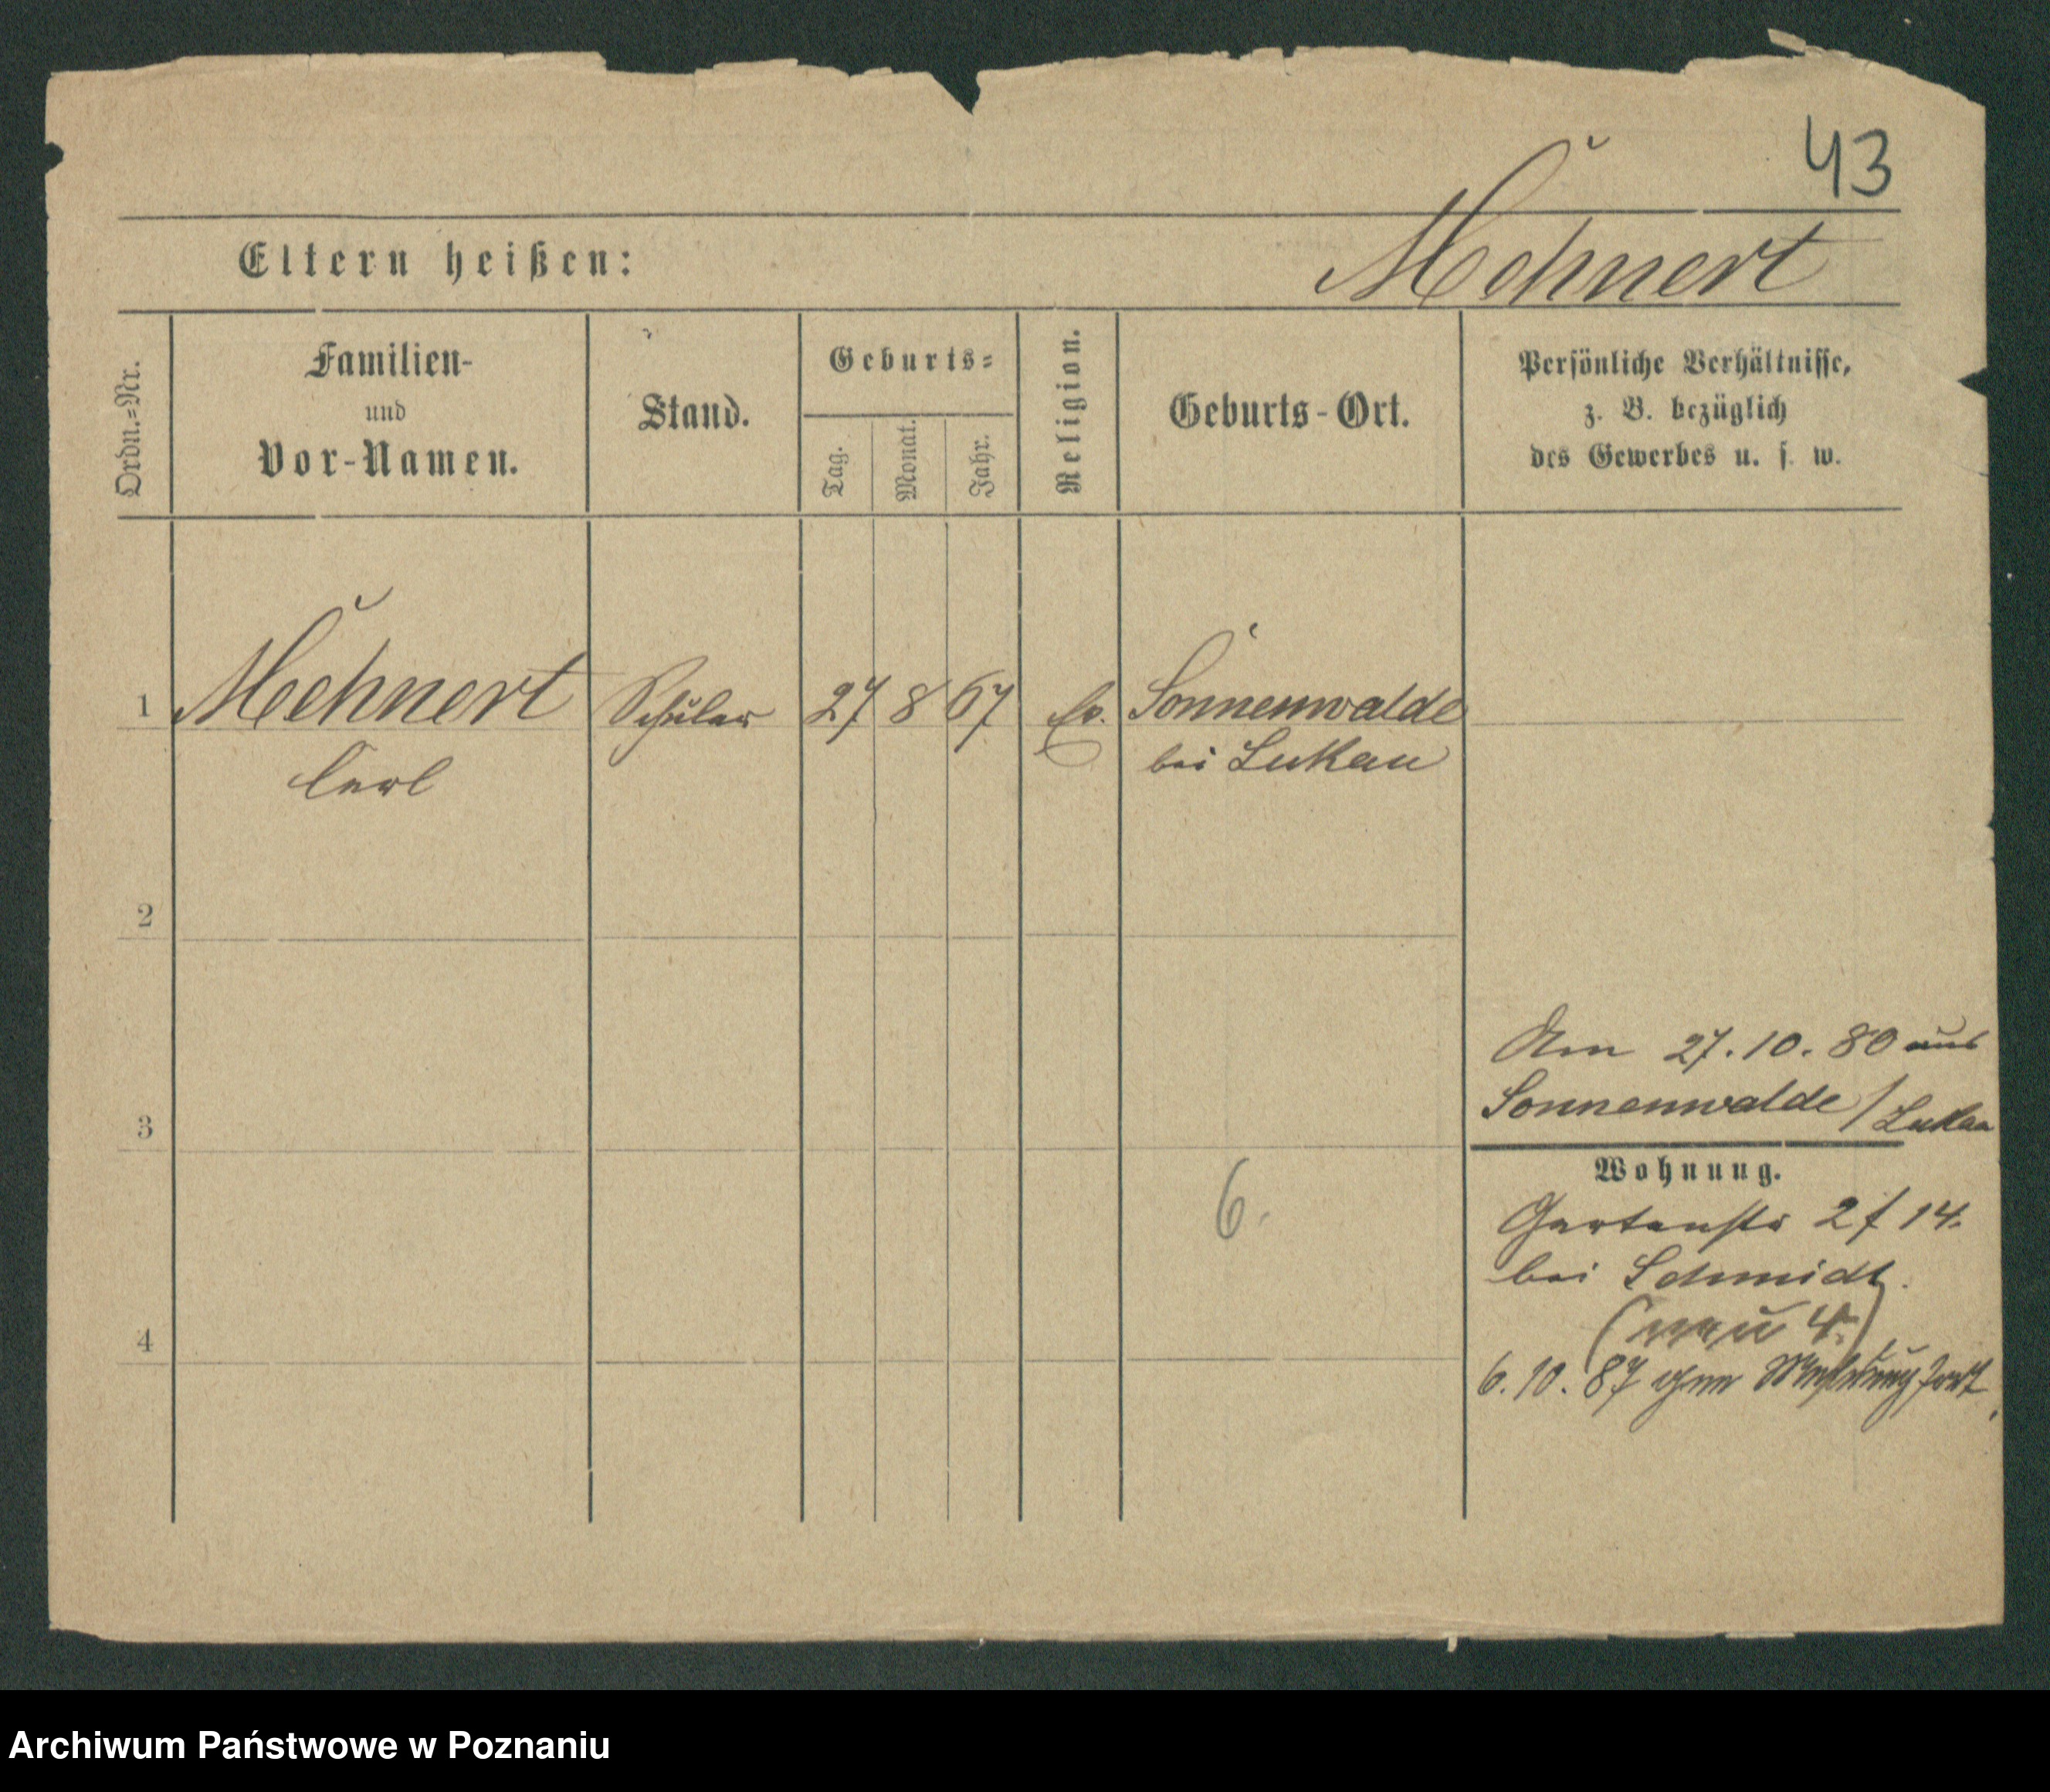 43
Eltern heißen:
Mehnert
Ordn.=Nr.
Familien-
und
Vor-Namen.
Stand.
Geburts=
Tag.
Monat.
Jahr.
Religion.
Geburts-Ort.
Persönliche Verhältnisse,
z. B. bezüglich
des Gewerbes u. s. w.
1 Mehnert Schüler 27 8 67 Ev. Sonnenwalde
Carl bei Lukau
2
3
4
6.
Am 27.10.80 aus
Sonnenwalde / Lukau
Wohnung.
Gartenstr 2 f 14.
bei Schmidt.
(neu 4.)
6.10.87 ohne Meldung fort
Archiwum Państwowe w Poznaniu